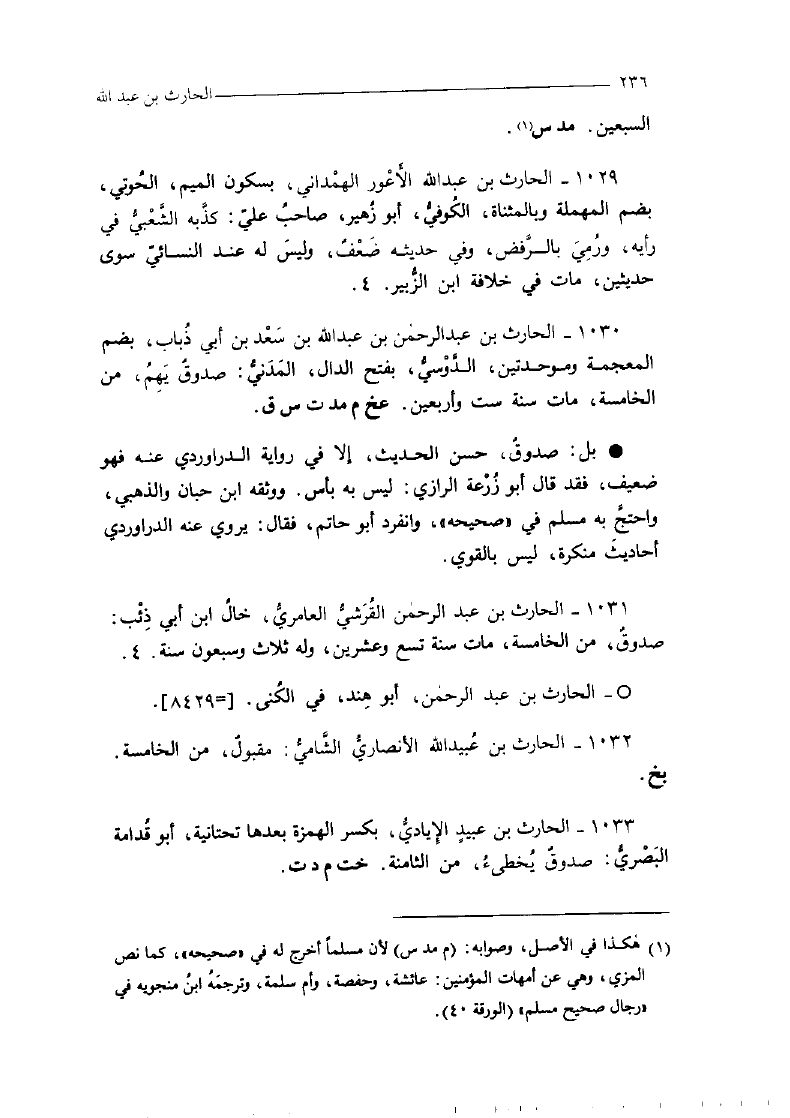 ٢٣٦ الحارث بن عبد الله
السبعين. مد س(١).
١٠٢٩ - الحارث بن عبدالله الأَعْور الهمْداني، بسكون الميم، الحُوتي،
بضم المهملة وبالمثناة، الكُوفيُّ، أبو زُهير، صاحبُ عليّ: كذَّبه الشَّعْبيُّ في
رأيه، ورُمِيَ بالرَّفض، وفي حديثه ضَعْفٌ، وليسَ له عند النسائيّ سوى
حديثين، مات في خلافة ابن الزُّبير. ٤.
١٠٣٠ - الحارث بن عبدالرحمٰن بن عبدالله بن سَعْد بن أبي ذُباب، بضم
المعجمة وموحدتين، الدَّوْسيُّ، بفتح الدال، المَدَنيُّ: صدوقٌ يَهِمُ، من
الخامسة، مات سنة ست وأربعين. عخ م مد ت س ق.
● بل: صدوقٌ، حسن الحديث، إلا في رواية الدراوردي عنه فهو
ضعيف، فقد قال أبو زُرْعة الرازي: ليس به بأس. ووثقه ابن حبان والذهبي،
واحتجَّ به مسلم في «صحيحه»، وانفرد أبو حاتم، فقال: يروي عنه الدراوردي
أحاديثَ منكرة، ليس بالقوي.
١٠٣١ - الحارث بن عبد الرحمٰن القُرَشيُّ العامريُّ، خالُ ابن أبي ذِئْب:
صدوقٌ، من الخامسة، مات سنة تسع وعشرين، وله ثلاث وسبعون سنة. ٤.
○ - الحارث بن عبد الرحمٰن، أبو هِند، في الكُنى. [=٨٤٢٩].
١٠٣٢ - الحارث بن عُبيدالله الأنصاريُّ الشَّاميُّ: مقبولٌ، من الخامسة.
بخ.
١٠٣٣ - الحارث بن عبيدٍ الإياديُّ، بكسر الهمزة بعدها تحتانية، أبو قُدامة
البَصْريُّ: صدوقٌ يُخطىءُ، من الثامنة. خت م د ت.
(١) هٰكذا في الأصل، وصوابه: (م مد س) لأن مسلماً أخرج له في «صحيحه»، كما نص
المزي، وهي عن أمهات المؤمنين: عائشة، وحفصة، وأم سلمة، وترجمَهُ ابنُ منجويه في
«رجال صحيح مسلم» (الورقة ٤٠).